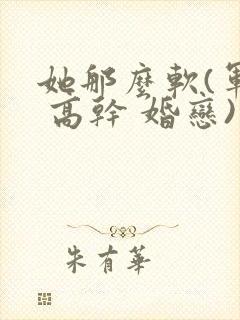 她那麼軟(軍
高幹 婚戀)
朱有華